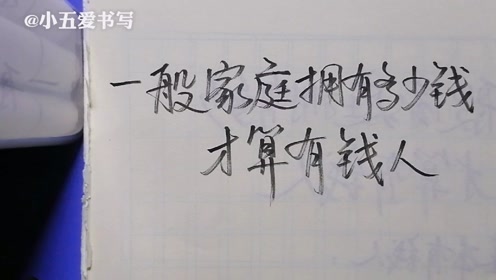 @小五爱书写
一般家庭拥有多少钱
才算有钱人